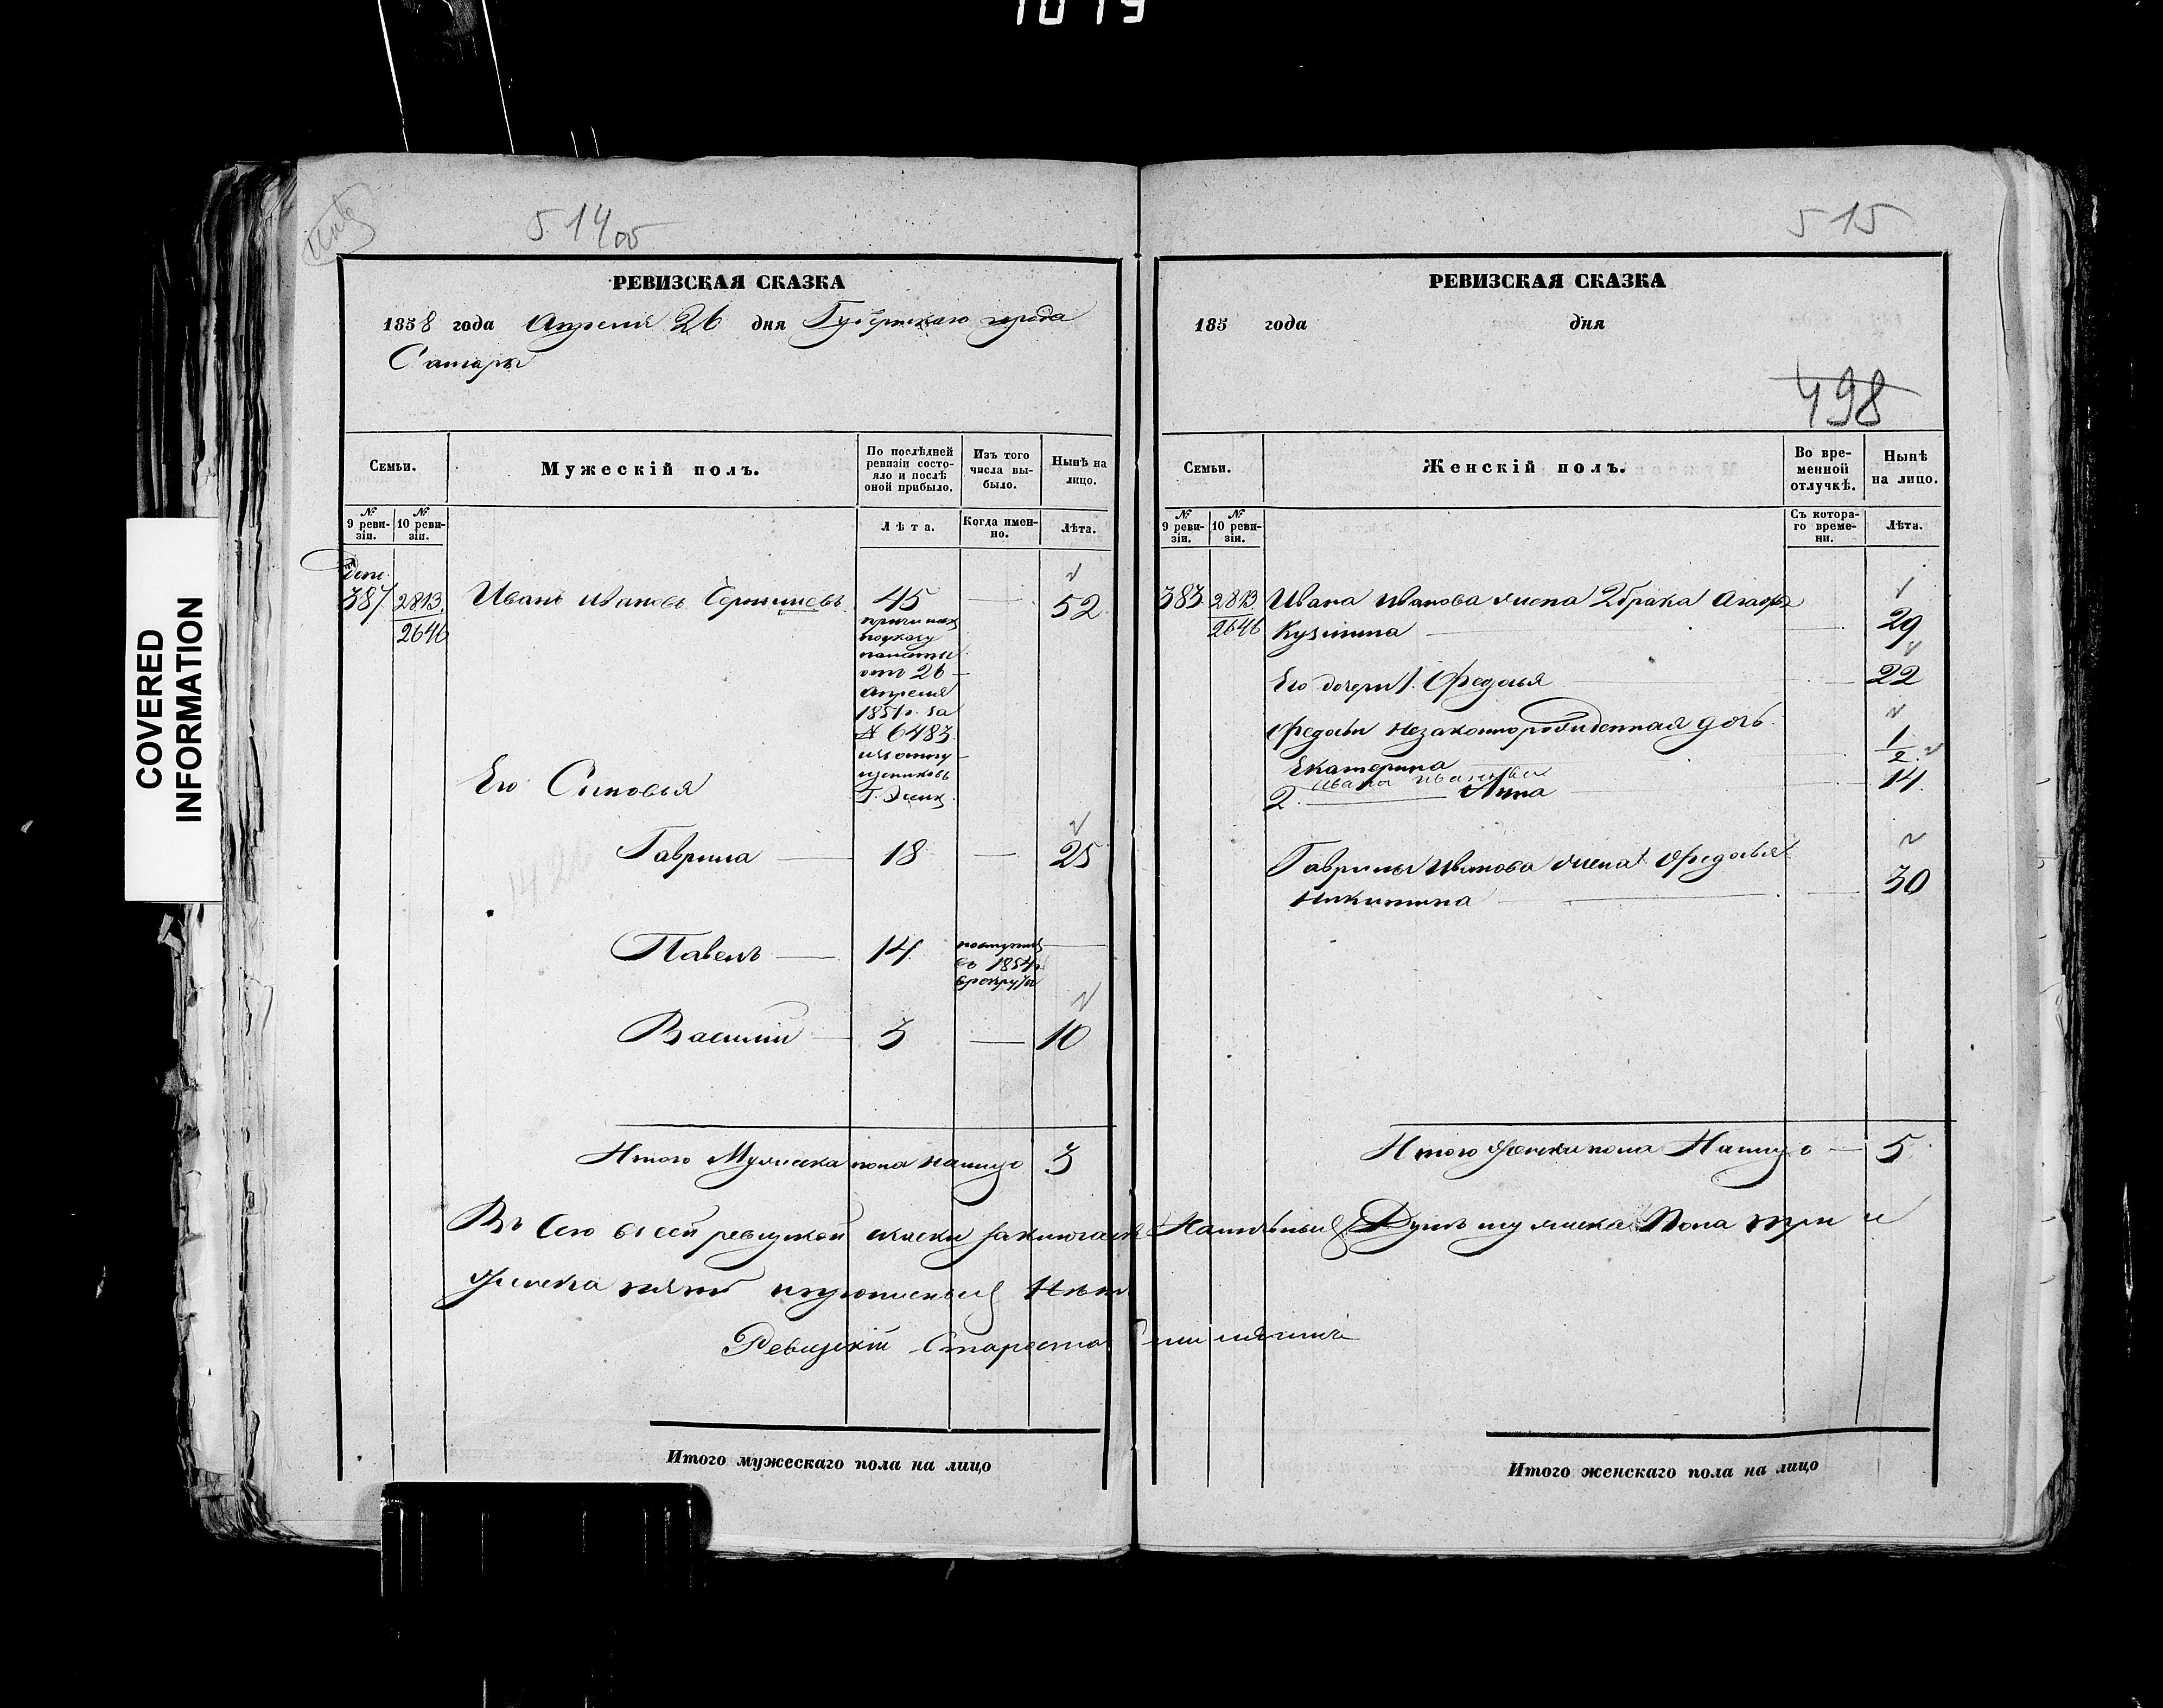 1019
514 об
РЕВИЗСКАЯ СКАЗКА
1858 года Апреля 26 дня Губернскаго города
Самары
Семьи.
Мужескій полъ.
По послѣдней ревизіи состояло и послѣ оной прибыло.
Изъ того числа выбыло.
Нынѣ на лицо.
№ 9 ревизіи.
№ 10 ревизіи.
Лѣта.
Когда именно.
Лѣта.
387 2813 Иванъ Ивановъ 45 — 52
2646
причислен
по указу
палаты
отъ 26
Апреля
1851 г. за
№ 6483
Его Сыновья
Гаврила — 18 — 25
Павелъ — 14 поступил
въ 1854 г.
в рекруты
Василий — 3 — 10
Итого Мужеска пола налицо 3
Въ сей ревизкой скаски заключается Наличныхъ Душъ мужеска Пола три и
женска пять Нетъ
Ревизкій Староста
Итого мужескаго пола на лицо
COVERED
INFORMATION
515
РЕВИЗСКАЯ СКАЗКА
185 года дня
498
Семьи.
Женскій полъ.
Во временной отлучкѣ.
Нынѣ на лицо.
№ 9 ревизіи.
№ 10 ревизіи.
Съ котораго времени.
Лѣта.
383 2813 Ивана Иванова жена 2 брака Агафья
2646 Кузмина 29
Его дочери 1. Федосья 22
Федосьи незаконнорожденная дочь
Екатерина 1/2
Ивана Иванова
2. Анна 14
Гаврилы Иванова жена Федосья
Никитина 30
Итого женска пола Налицо — 5
Итого женскаго пола на лицо